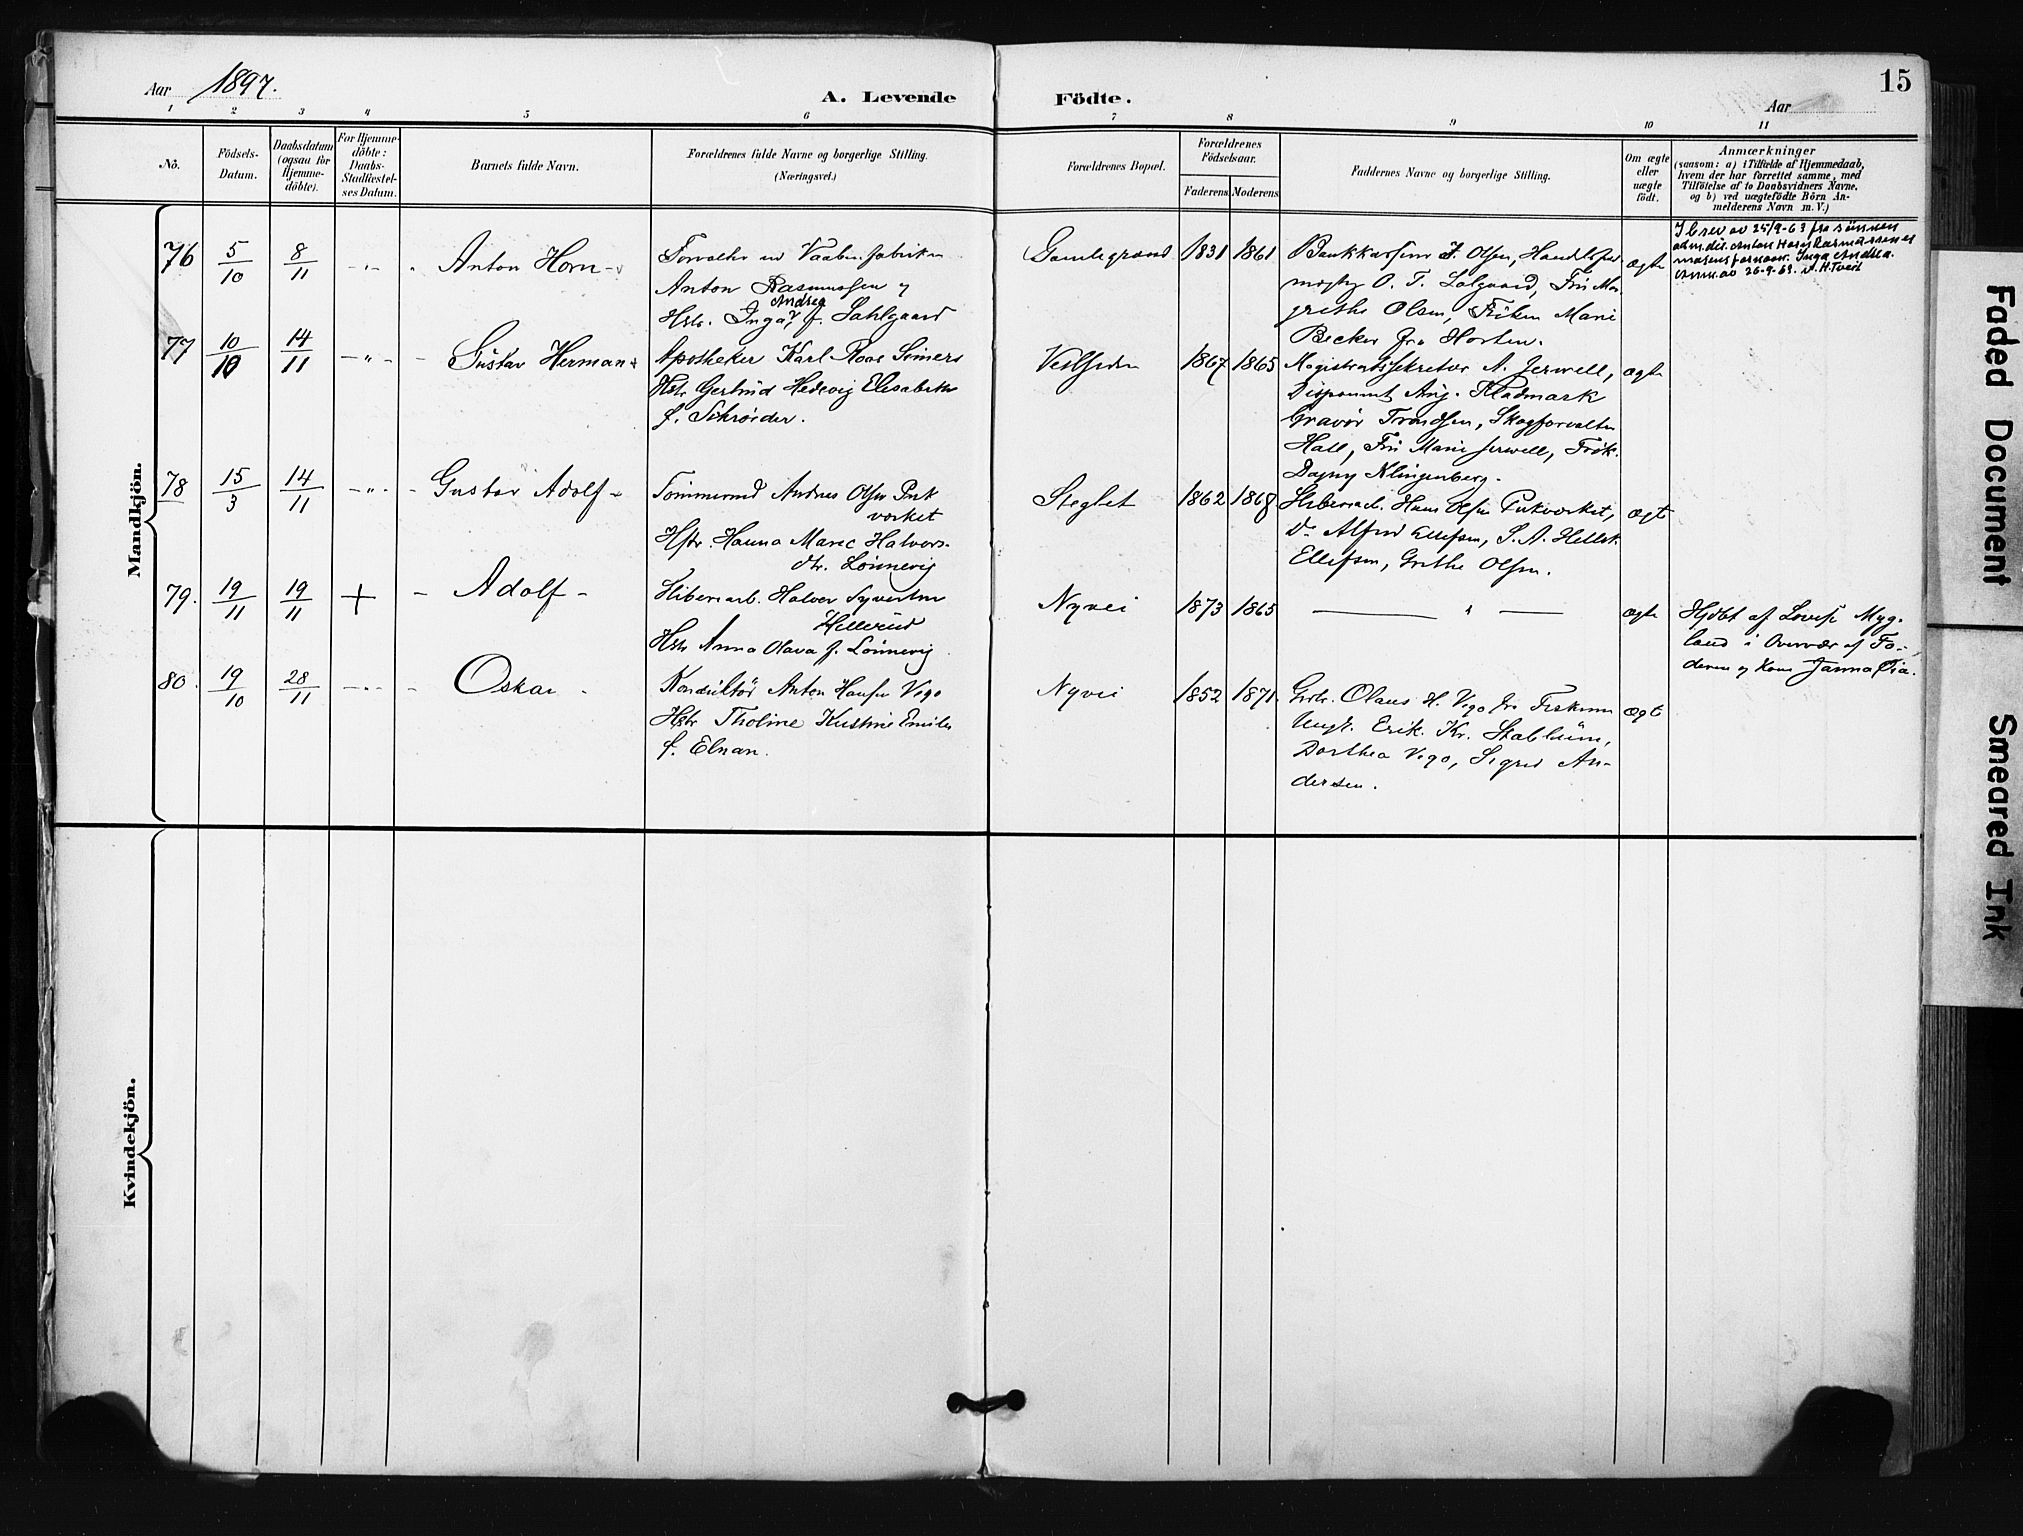 Aar 1897.
A. Levende Födte.
Aar
15
1 2 3 4 5 6 7 8 9 10 11
No.
Födsels-Datum.
Daabsdatum (ogsaa for Hjemme-döbte).
For Hjemme-döbte: Daabs-Stadfæstel-ses Datum.
Barnets fulde Navn.
Forældrenes fulde Navne og borgerlige Stilling.
(Næringsvei.)
Forældrenes Bopæl.
Forældrenes Födselsaar.
Faderens Moderens
Faddernes Navne og borgerlige Stilling.
Om ægte eller uægte födt.
Anmærkninger
(saasom: a) i Tilfælde af Hjemmedaab,
hvem der har forrettet samme, med
Tilföielse af to Daabsvidners Navne,
og b) ved uægtefödte Börn An-
melderens Navn m. V.)
Mandkjön.
76 5/10 8/11 - " - Anton Horn -
Forvalter ved Vaabenfabriken
Anton Rasmussen og
Hstr. Inga Andrea f. Sahlgaard
Gamlegrænd 1831 1861
Bankkasserer F. Olsen, Handelsfuld
mægtig O. T. Solgaard, Fru Mar
grethe Olsen, Fröken Marie
Becker fra Horten.
ægte
I brev av 25/9-63 fra sönnen
adm.dir. Anton Horn Rasmussen er
morens fornavn: Inga Andrea.
Anm. av 26-9-63. H. Tveit
77 10/10 14/11 - " - Gustav Herman
Apotheker Karl Roar Simers
Hstr. Gertrud Hedevig Elisabeth
f. Schröder.
Vestsiden 1867 1865
Magistratssekretær A. Jerwell,
Disponent Aug. Kladmark
Gravör Trondsen, Skogforvalter
Hall, Fru Marie Jerwell, Frök.
Dagny Klingenberg.
ægte
78 15/3 14/11 - " - Gustav Adolf -
Tömmermd Andres Olsen Puk
værket
Hstr. Hanna Marie Halvors-
dtr. Lönnevig
Steglet 1862 1868
Sliberarb. Hans Olsen Pukværket,
Do Alfred Ellefsen, S. A. Hellek
Ellefsen, Grethe Olsen.
ægte
79. 19/11 19/11 + - Adolf -
Sliberiarb. Halvor Syvertsen
Hellerud
Hstr. Anna Olava f. Lönnevig
Nyvei 1873 1865 — " — ægte
Hjdöbt af Lovise Myg-
land i Overvær af Fa-
deren og Kone Janna Pia.
80. 19/10 28/11 - " - Oskar -
Konduktör Anton Hansen Vego
Hstr Tholine Kristine Emilie
f. Elnan.
Nyvei 1852 1871.
Grdr. Olaus H. Vego fra Fiskum
Ungk. Erik Kr. Stablum,
Dorthea Vego, Sigrid An-
dersen.
ægte
Kvindekjön.
Faded Document
Smeared Ink